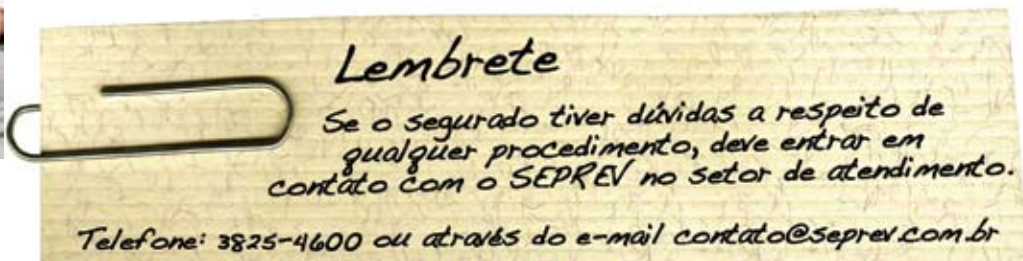 Lembrete
Se o segurado tiver dúvidas a respeito de
qualquer procedimento, deve entrar em
contato com o SEPREV no setor de atendimento.
Telefone: 3825-4600 ou através do e-mail contato@seprev.com.br